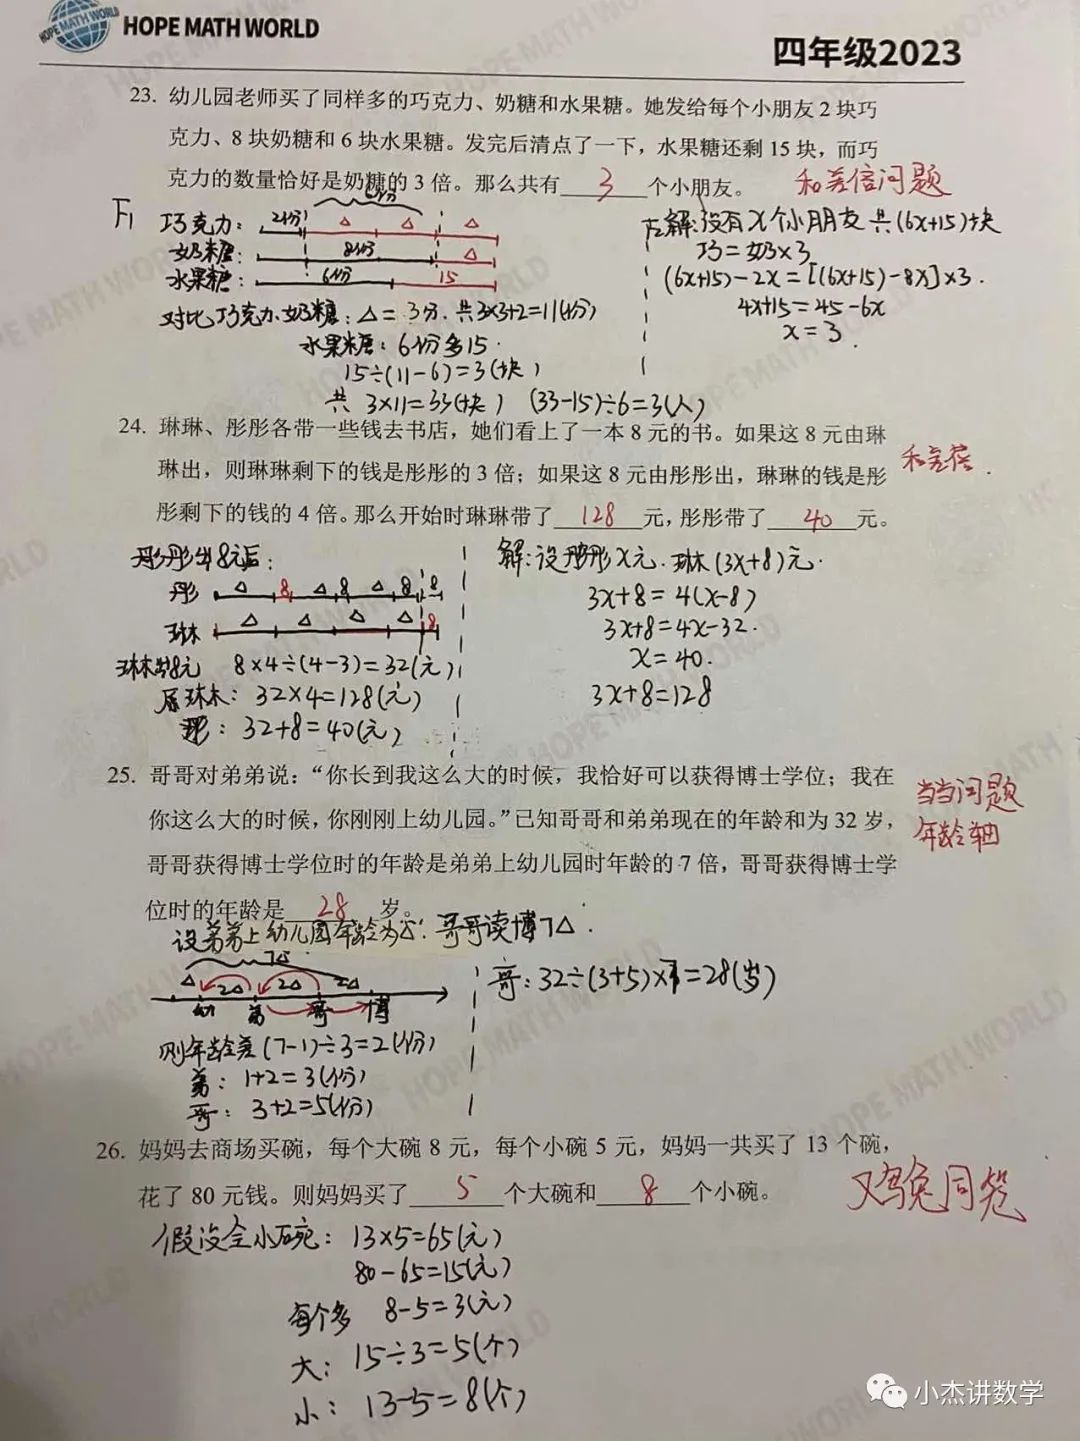 HOPE MATH WORLD
四年级2023
23. 幼儿园老师买了同样多的巧克力、奶糖和水果糖。她发给每个小朋友 2 块巧
克力、8 块奶糖和 6 块水果糖。发完后清点了一下，水果糖还剩 15 块，而巧
克力的数量恰好是奶糖的 3 倍。那么共有 3 个小朋友。
和差倍问题
巧克力：2份 6份 △ △ △
奶糖： 8份 △
水果糖： 6份 15
对比巧克力、奶糖：△=3份. 共3×3+2=11(份)
水果糖：6份多15.
15÷(11-6)=3(块)
共 3×11=33(块) (33-15)÷6=3(人)
解:设有x个小朋友 共(6x+15)块
巧=奶×3
(6x+15)-2x=[(6x+15)-8x]×3.
4x+15=45-6x
x=3.
24. 琳琳、彤彤各带一些钱去书店，她们看上了一本 8 元的书。如果这 8 元由琳
琳出，则琳琳剩下的钱是彤彤的 3 倍；如果这 8 元由彤彤出，琳琳的钱是彤
彤剩下的钱的 4 倍。那么开始时琳琳带了 128 元，彤彤带了 40 元。
和差倍.
彤彤出8元后：
彤 △ 8 △ 8 △ 8 8
琳 △ △ △ △ 8
琳琳出8元 8×4÷(4-3)=32(元)
原琳：32×4=128(元)
彤：32+8=40(元)
解:设彤彤x元.琳(3x+8)元.
3x+8=4(x-8)
3x+8=4x-32.
x=40.
3x+8=128
25. 哥哥对弟弟说：“你长到我这么大的时候，我恰好可以获得博士学位；我在
你这么大的时候，你刚刚上幼儿园。”已知哥哥和弟弟现在的年龄和为 32 岁，
哥哥获得博士学位时的年龄是弟弟上幼儿园时年龄的 7 倍，哥哥获得博士学
位时的年龄是 28 岁。
当当问题
年龄轴
设弟弟上幼儿园年龄为△. 哥哥读博7△.
7△
△ 2△ 2△ 2△
幼 弟 哥 博
则年龄差(7-1)÷3=2(份)
弟：1+2=3(份)
哥：3+2=5(份)
哥：32÷(3+5)×7=28(岁)
26. 妈妈去商场买碗，每个大碗 8 元，每个小碗 5 元，妈妈一共买了 13 个碗，
花了 80 元钱。则妈妈买了 5 个大碗和 8 个小碗。
鸡兔同笼
假设全小碗：13×5=65(元)
80-65=15(元)
每个多 8-5=3(元)
大：15÷3=5(个)
小：13-5=8(个)
小杰讲数学